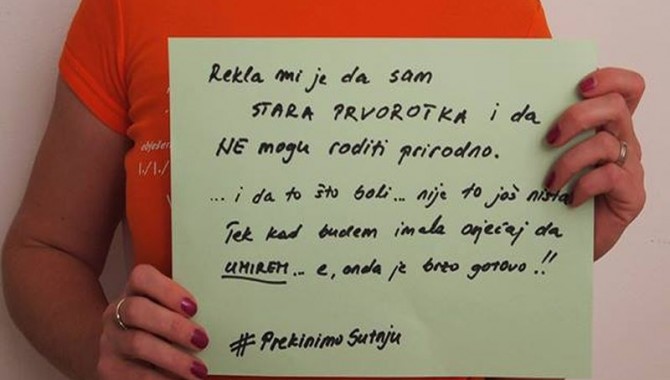 Rekla mi je da sam
STARA PRVOROTKA i da
NE mogu roditi prirodno.
... i da to što boli... nije to još ništa
Tek kad budem imala osjećaj da
UMIREM... e, onda je brzo gotovo!!
#PrekinimoŠutnju